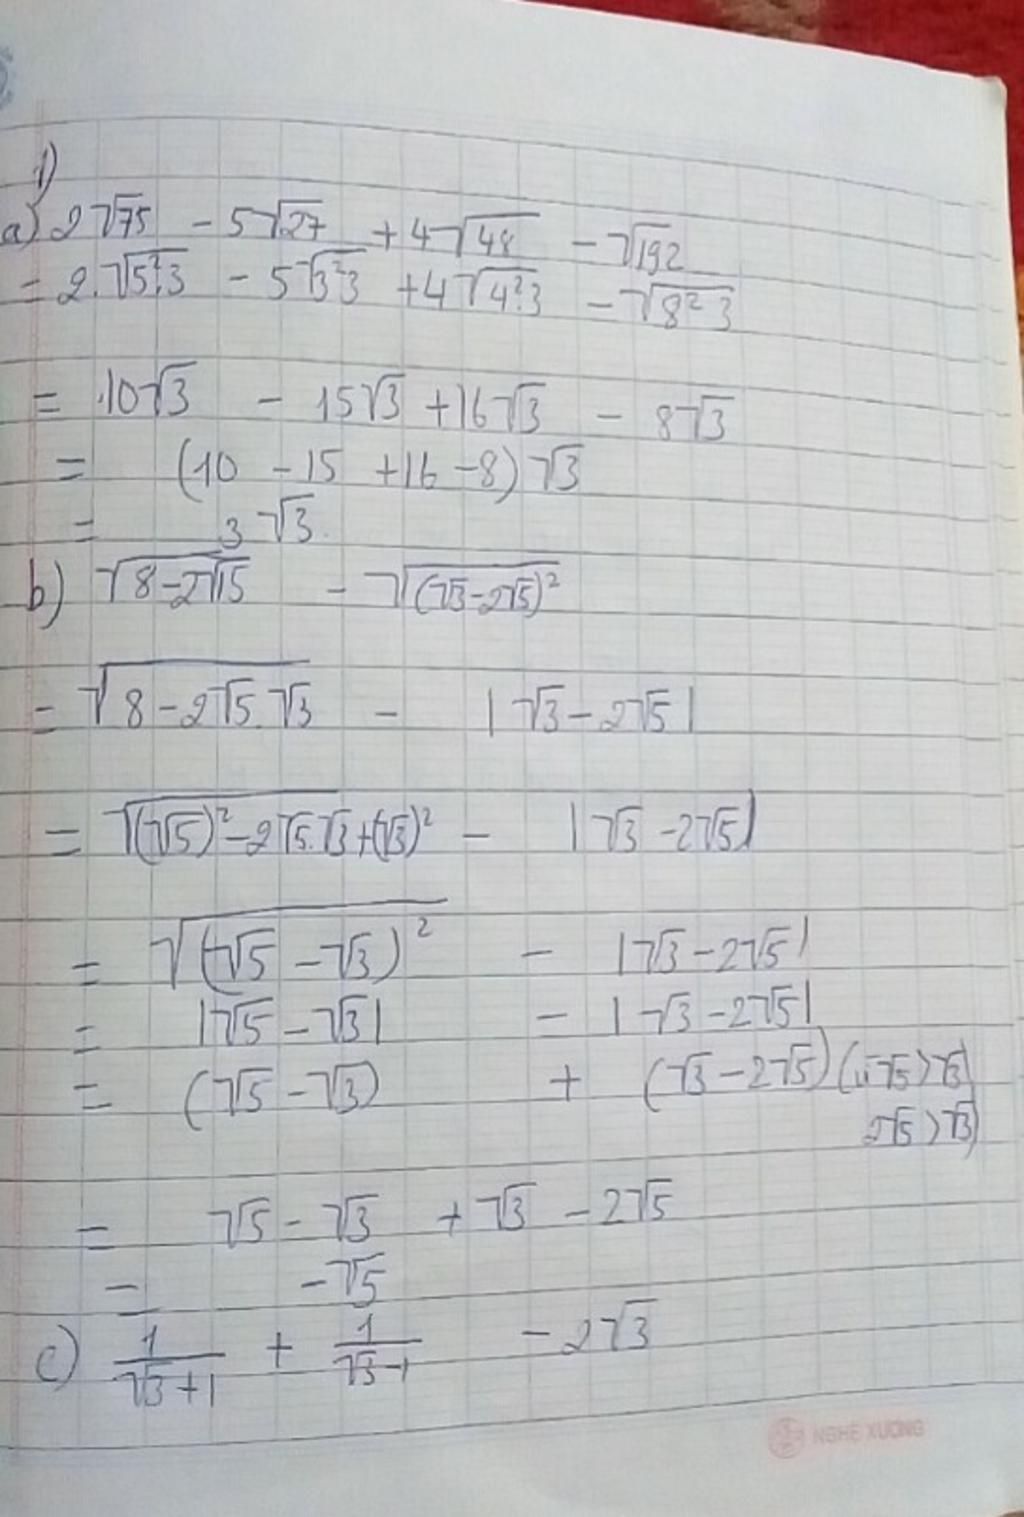 1)
a) 2√75 - 5√27 + 4√48 - √192
= 2.√5².3 - 5√3².3 + 4√4².3 - √8² 3
= 10√3 - 15√3 + 16√3 - 8√3
= (10 - 15 + 16 - 8)√3
= 3√3.
b) √8-2√15 - √(√3-2√5)²
= √8-2√5.√3 - |√3-2√5|
= √(√5)²-2√5.√3+(√3)² - |√3-2√5|
= √(√5-√3)² - |√3-2√5|
= |√5-√3| - |√3-2√5|
= (√5-√3) + (√3-2√5) (√5>√3
2√5>√3)
= √5-√3 + √3-2√5
= -√5
c) 1/(√3+1) + 1/(√3-1) - 2√3
NGHE XUONG